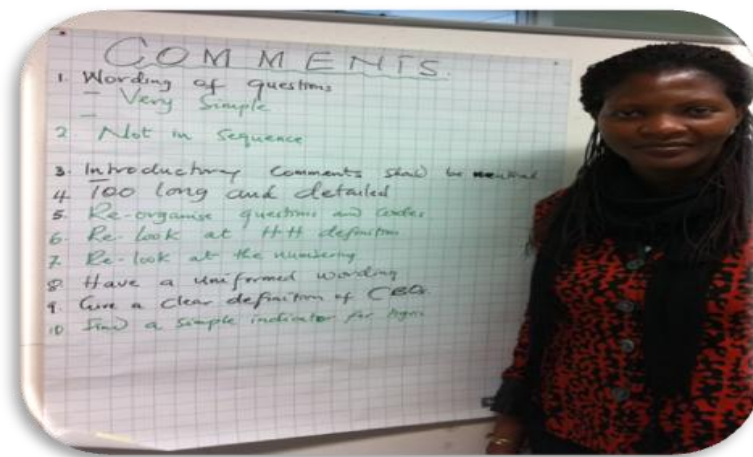 COMMENTS.
1. Wording of questions
- Very Simple
2 Not in sequence
3. Introductory comments should be neutral
4 Too long and detailed
5 Re-organise questions and codes
6 Re-look at HH definition
7 Re-look at the numbering
8. Have a uniformed wording
9. Give a clear definition of CBO.
10 Find a simple indicator for